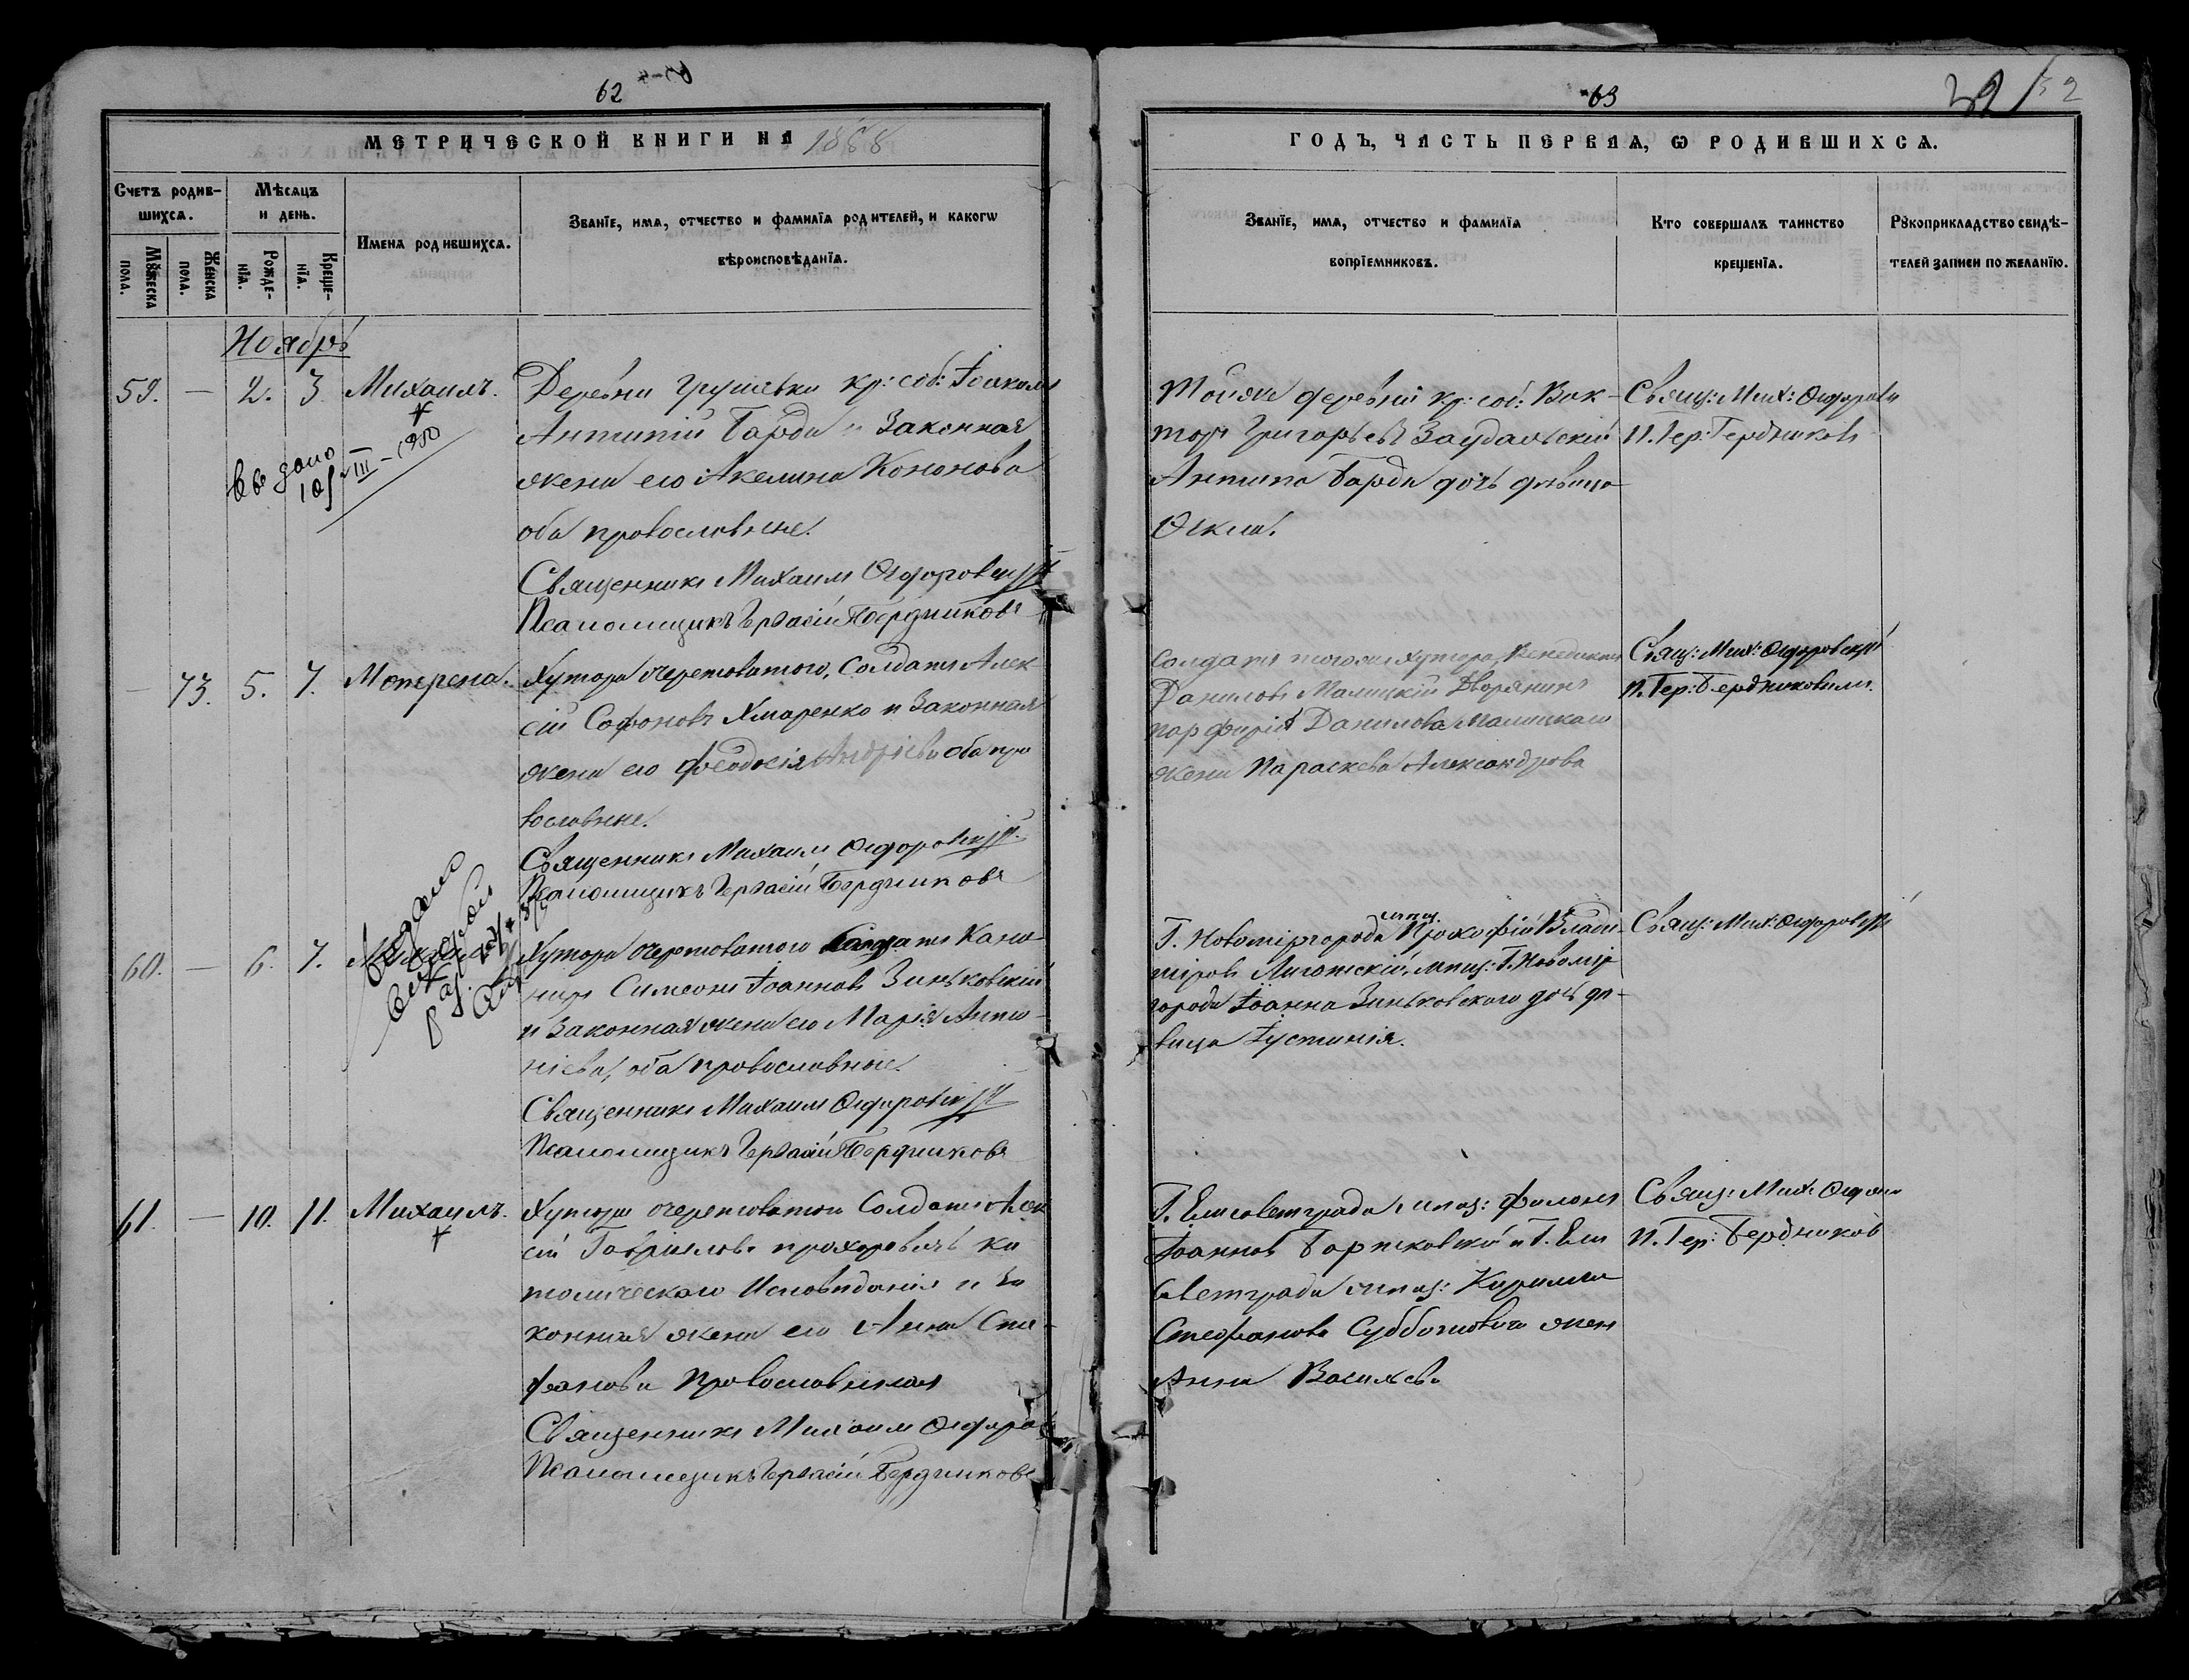 62
МЕТРИЧЕСКОЙ КНИГИ НА 1888
Счетъ родив-
шихсѧ.
Мѣсѧцъ
и день.
Имена родившихсѧ.
Званїе, имѧ, отчество и фамилїѧ родителей, и какогѡ
вѣроисповѣданїѧ.
Мꙋжеска
пола.
Женска
пола.
Рожде-
нїѧ.
Креще-
нїѧ.
Ноябрь
59. — 2. 3 Михаилъ. Деревни Грушевки кр: соб: Іоакимъ
Антипій Барда и Законная
жена его Акелина Кононова
оба провославные.
Священникъ Михаилъ Ѳедоровскій
Псаломщикъ Гервасій Бердниковъ
выдано
10/III – 1950
— 73. 5. 7. Мотрена. Хутора Черетоватого, Солдатъ Алек
сій Софоновъ Хмаренко и Законная
жена его Феодосія Андріева оба про
вославные.
Священникъ Михаилъ Ѳедоровскій
Псаломщикъ Гервасій Бердниковъ
60. — 6. 7. Хутора Черетоватого Кано
ниръ Симеонъ Іоанновъ Зиньковскій
и Законная жена его Марія Анто-
ніева, оба провославные.
Священникъ Михаилъ Ѳедоровскій
Псаломщикъ Гервасій Бердниковъ
61. — 10. 11. Михаилъ. Хутора Черетоватого Солдатъ Алек
сій Гавріиловъ Прохоровичъ ка
толическаго Исповеданія и За
конная жена его Анна Сте-
фанова Провославная
Священникъ Михаилъ Ѳедоров
Псаломщикъ Гервасій Бердниковъ
63
32
ГОДЪ, ЧАСТЬ ПЕРВАѦ, Ѡ РОДИВШИХСѦ.
Званїе, имѧ, отчество и фамилїѧ
воспрїемниковъ.
Кто совершалъ таинство
крещенїѧ.
Рꙋкоприкладство свидѣ-
телей записи по желанїю.
Той же деревни кр: соб: Вик-
торъ Григорьевъ Заудальскій
Антипа Барды дочь девица
Ѳекла.
Свящ: Мих: Ѳедоровск
П. Гер: Бердниковъ
Солдатъ того же Хутора, Венедиктъ
Даниловъ Малицкій Дворянинъ
Порфирія Данилова Малицкаго
жена Параскева Александрова
Свящ: Мих: Ѳедоровскій
П. Гер: Бердниковымъ.
мещ.
Г. Новомиргорода Прокофій Влади-
міровъ Лиготскій, мещ: Г. Новомир
города Іоанна Зиньковского дочь де-
вица Іустинія.
Свящ: Мих: Ѳедоровскій
Г. Елисаветграда мещ: Филонъ
Іоанновъ Бартковскій и Г. Ели
саветграда мещ: Кирилла
Стефанова Субботовича жена
Анна Васильева
Свящ: Мих: Ѳедоро
П. Гер: Бердниковъ